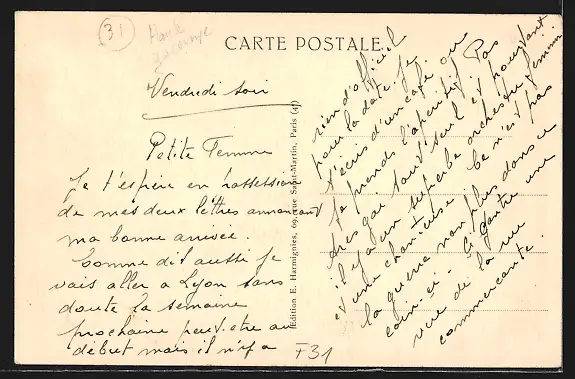 31
Haute
Garonne
CARTE POSTALE
Vendredi soir
Petite Femme
Je t'espère en possession
de mes deux lettres annoncant
ma bonne arrivée.
Comme dit aussi je
vais aller a Lyon sans
doute la semaine
prochaine peut-etre au
début mais il n'y a
rien d'officiel
pour la date. Je
t'écris d'un café ou
Je prends l'aperitif. Pas
tres gai tout seul et pourtant
il y a un superbe orchestre feminin
et une chanteuse. Ce n'est pas
la guerre non plus dans ce
coin-ci. Ci contre une
vue de la rue
commercante.
Edition E. Harmignies, 69, rue Saint-Martin, Paris (4e)
F31